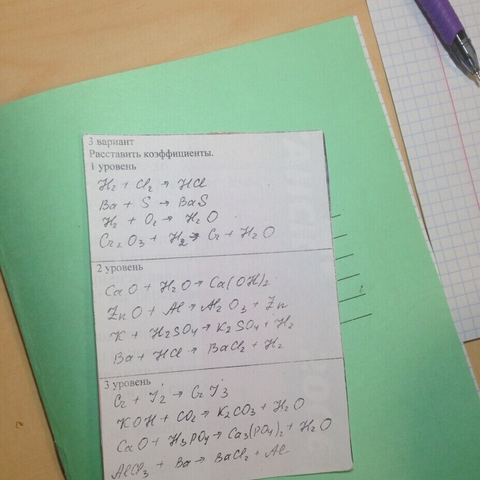 3 вариант
Расставить коэффициенты.
1 уровень
H₂ + Cl₂ → HCl
Ba + S → BaS
H₂ + O₂ → H₂O
Cr₂O₃ + H₂ → Cr + H₂O
2 уровень
CaO + H₂O → Ca(OH)₂
ZnO + Al → Al₂O₃ + Zn
K + H₂SO₄ → K₂SO₄ + H₂
Ba + HCl → BaCl₂ + H₂
3 уровень
Cr + I₂ → CrI₃
KOH + CO₂ → K₂CO₃ + H₂O
CaO + H₃PO₄ → Ca₃(PO₄)₂ + H₂O
AlCl₃ + Ba → BaCl₂ + Al